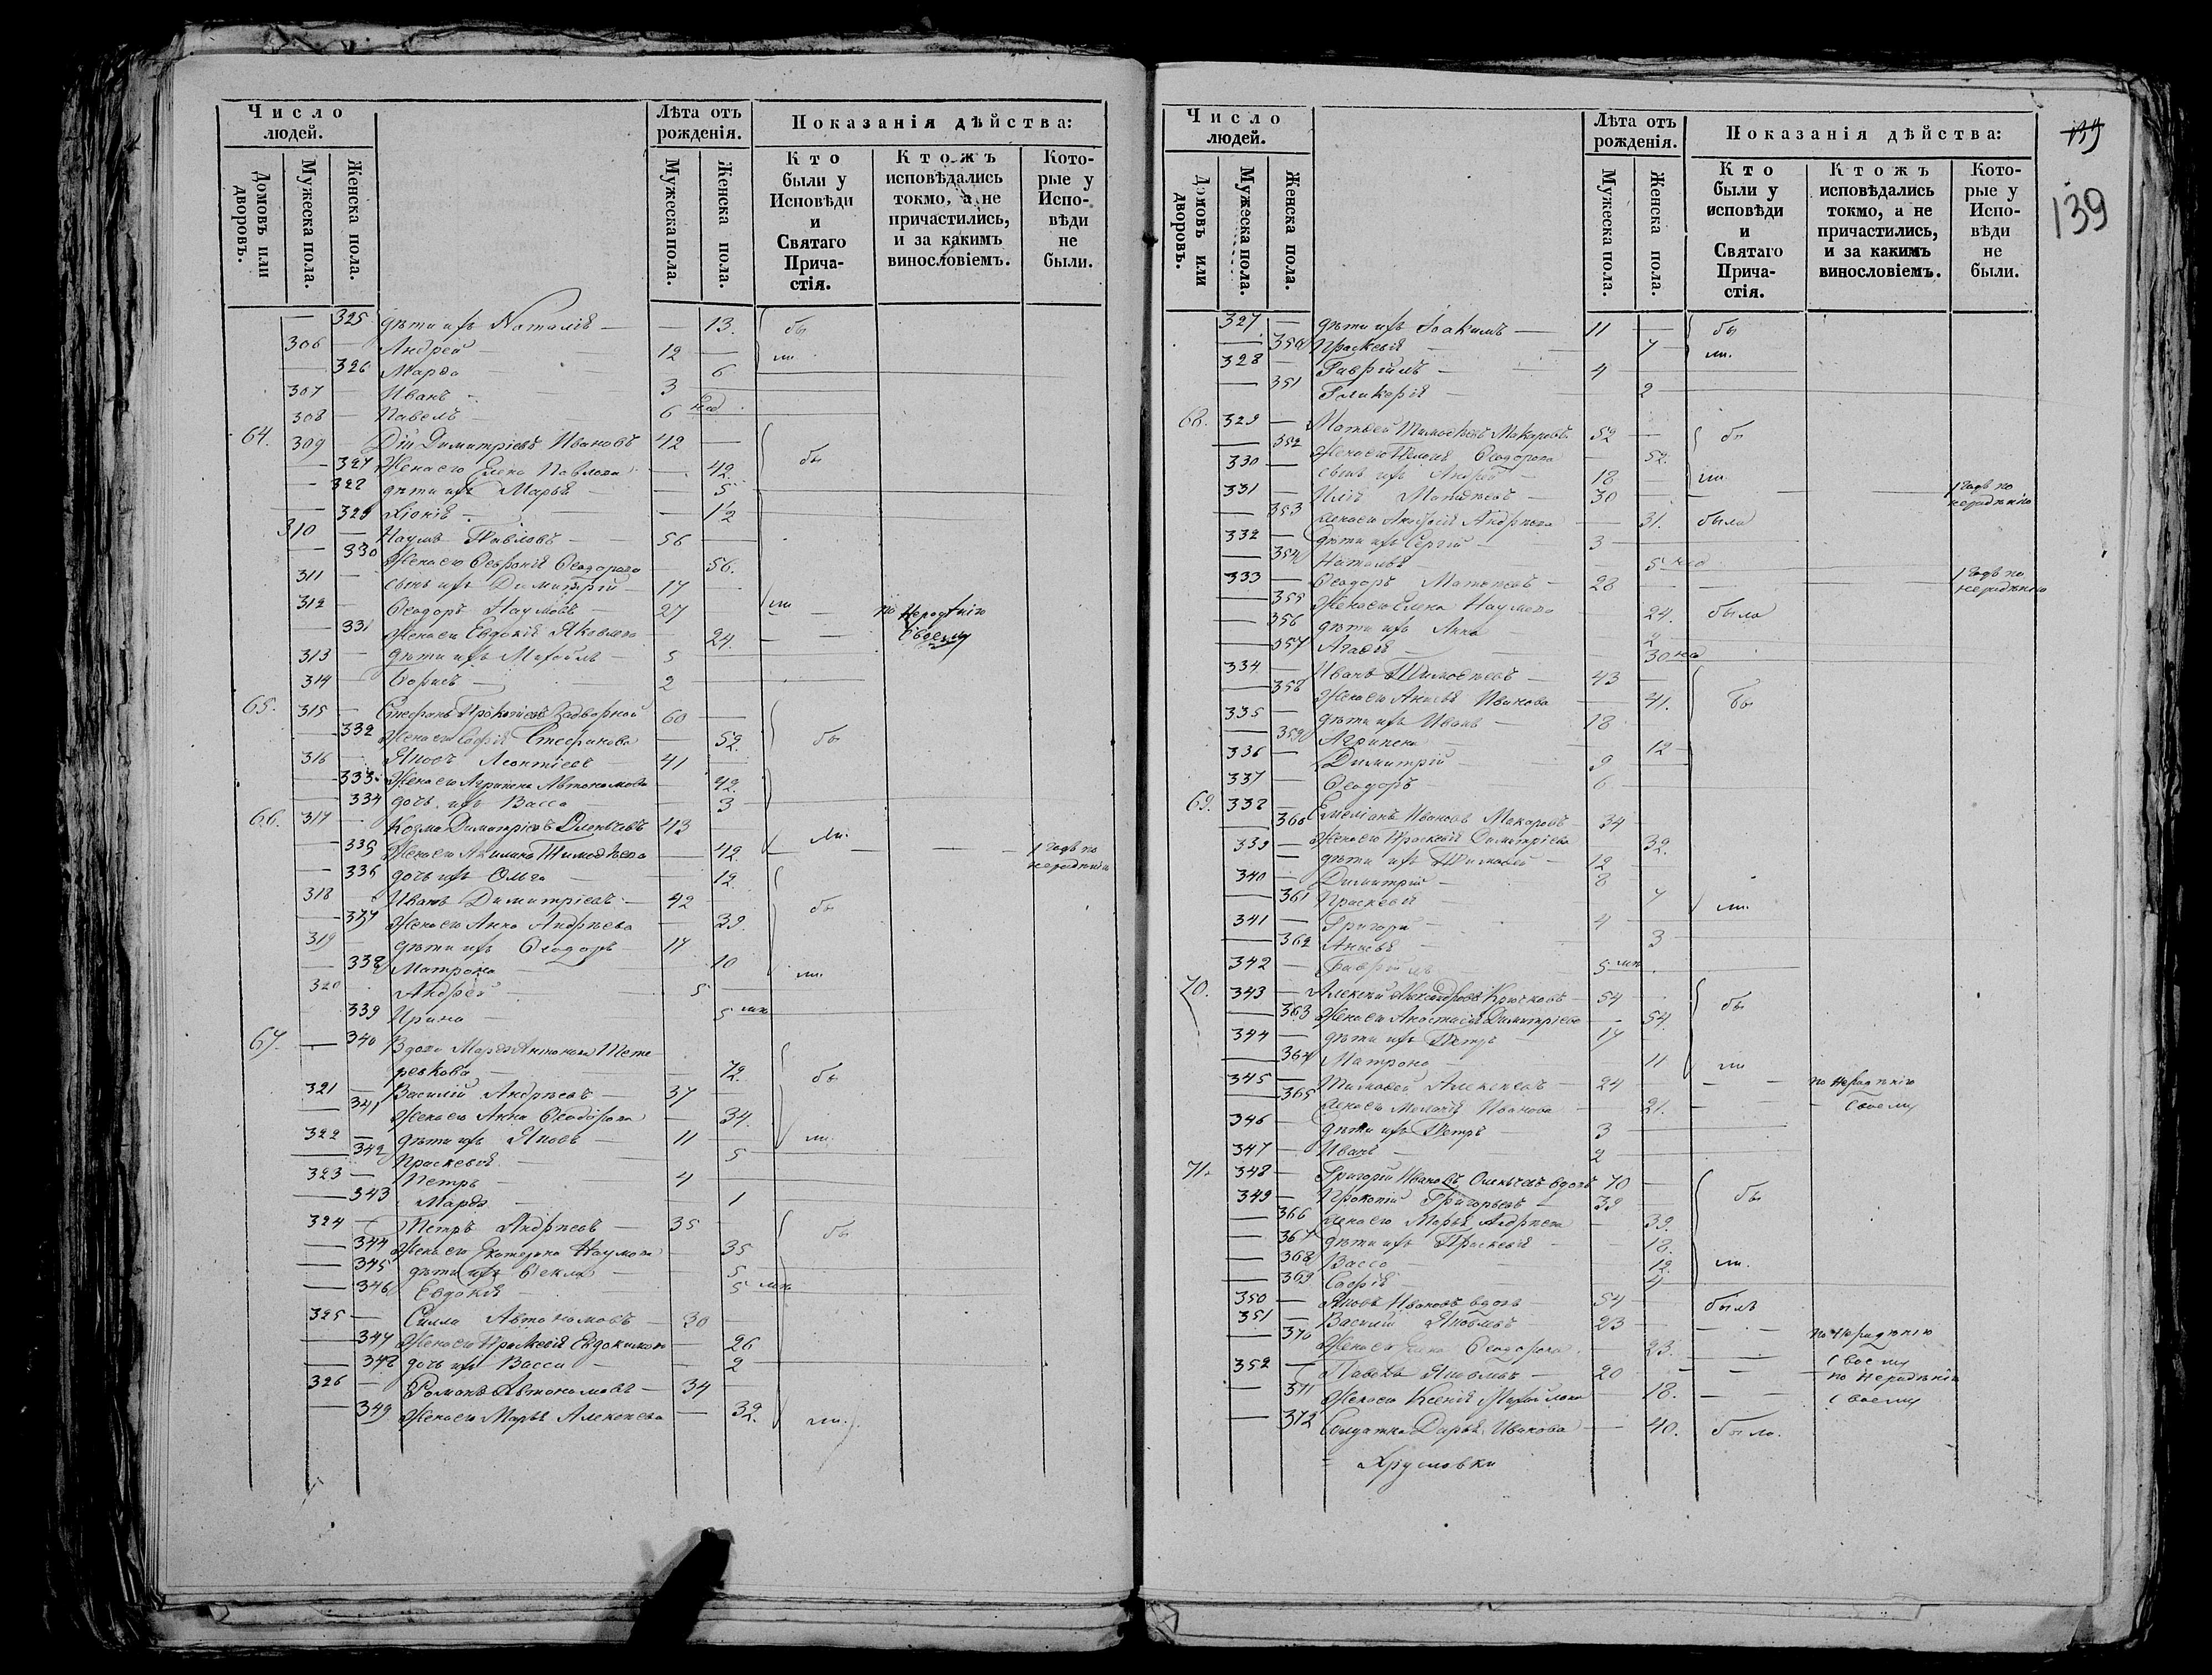 Число людей.
Лѣта отъ рожденія.
Показанія дѣйства:
Домовъ или дворовъ.
Мужеска пола.
Женска пола.
Мужеска пола.
Женска пола.
Кто были у Исповѣди и Святаго Прича-стія.
Ктожъ исповѣдались токмо, а не причастились, и за какимъ винословіемъ.
Кото-рые у Испо-вѣди не были.
— 325 дѣти ихъ Наталія — — 13. бы
306 — Андрей — 12 — ли
— 326 Марѳа — 6
307 — Иванъ — 3
308 — Павелъ — 6 нед
64. 309 — Дій Димитріевъ Ивановъ 42 —
— 327 Жена его Елена Павлова — 42. бы
— 328 дѣти ихъ Марья — — 5
— 329 Хіонія — — 1/2
310 — Наумъ Павловъ — 56 —
— 330 Жена его Ѳеѳронія Ѳеодорова 56.
311 — сынъ ихъ Димитрій — 17 ли
312 — Ѳеодоръ Наумовъ — 27 — по нерадѣнію
— 331 Жена его Евдокія Яковлева — 24. — своему
313 — дѣти ихъ Михаилъ — 5
314 — Борисъ — 2
65. 315 — Стефанъ Прокопіевъ Задворной 60 —
— 332 Жена его Софія Стефанова — 52. бы
316 — Яковъ Леонтіевъ — 41 —
— 333 Жена его Агрипена Автономова — 42.
334 дочь ихъ Васса — 3
66. 317 — Козма Димитріевъ Оленичевъ 43 — ли.
— 335 Жена его Акилина Тимоѳѣева — 42. — — 1 годъ по
нерадѣнію
— 336 дочь ихъ Ольга — 12.
318 Иванъ Димитріевъ — 42 — бы
— 337 Жена его Анна Андрѣева — 39.
319 — дѣти ихъ Ѳеодоръ — 17
— 338 Матрона — 10 ли.
320 Андрей — 5
339 Ирина — 5 мц
67. — 340 Вдова Марѳа Антонова Тете-
ревкова — — 72. бы
321 — Василій Андрѣевъ — 37 —
— 341 Жена его Анна Ѳеодорова — 34.
322 — дѣти ихъ Яковъ — 11 — ли.
— 342 Праскевія — 5
323 — Петръ — 4
— 343 Марѳа — 1
324 — Петръ Андрѣевъ — 35 — бы
— 344 Жена его Екатерина Наумова — 35
— 345 дѣти ихъ Ѳекла — 5
— 346 Евдокія — 5 мц
325 — Силла Автономовъ — 30 —
— 347 Жена его Праскевія Евдокимова — 26
— 348 дочь ихъ Васса — 2
326 — Романъ Автономовъ — 34 —
— 349 Жена его Марья Алексѣева — 32. ли.
139
139
Число людей.
Лѣта отъ рожденія.
Показанія дѣйства:
Домовъ или дворовъ.
Мужеска пола.
Женска пола.
Мужеска пола.
Женска пола.
Кто были у исповѣди и Святаго Прича-стія.
Ктожъ исповѣдались токмо, а не причастились, и за какимъ винословіемъ.
Кото-рые у Испо-вѣди не были.
327 — дѣти ихъ Іоакимъ — 11 — бы
— 350 Праскевія — 7 ли.
328 — Гавріилъ — 4
— 351 Гликерія — 2
68. 329 — Матѳей Тимоѳѣевъ Макаровъ 52 — бы
— 352 Жена его Ѳеодорова — 52.
330 — сынъ ихъ Андрей — 18 ли
331 — Илія Матѳѣевъ — 30 — — 1 годъ по
нерадѣнію
— 353 Жена его Андрѣева — 31. была
332 — дѣти ихъ Сергій — 3
— 354 Наталья — 5 нед
333 — Ѳеодоръ Матѳѣевъ — 28 — — 1 годъ по
нерадѣнію
— 355 Жена его Елена Наумова — 24. была
— 356 дѣти ихъ Анна — 2
— 357 Агаѳія — 30 нед
334 — Иванъ Тимоѳѣевъ — 43 —
— 358 Жена его Анисья Иванова — 41. бы
335 — дѣти ихъ Иванъ — 18
— 359 Агрипена — 12
336 — Димитрій — 9
337 — Ѳеодоръ — 6
69. 338 — Емеліанъ Ивановъ Макаровъ 34 —
360 Жена его Праскевія Димитріева — 32.
339 — дѣти ихъ Тимоѳей — 12
340 — Димитрій — 8
— 361 Праскевія — 7 ли.
341 — Григорій — 4
— 362 Анисья — 3
342 — Гавріилъ — 5 мц
70. 343 — Алексій Александровъ Крючковъ — 54 — бы
— 363 Жена его Анастасія Димитріева — 54.
344 — дѣти ихъ Петръ — 17
— 364 Матрона — 11 ли
345 — Тимоѳей Алексѣевъ — 24 — — по нерадѣнію
— 365 Жена его Меланія Иванова — 21. — — своему
346 — дѣти ихъ Петръ — 3
347 — Иванъ — 2
71. 348 — Григорій Ивановъ Оленичевъ вдовъ 70 —
349 — Прокопій Григорьевъ — 39 — бы
— 366 Жена его Марья Андрѣева — 39.
— 367 дѣти ихъ Праскевія — 18.
— 368 Васса — 12. ли.
— 369 Софія — 4
350 — Яковъ Ивановъ вдовъ — 54 — былъ
351 — Василій Яковлевъ — 23 — — по нерадѣнію
— 370 Жена его Ѳеодорова — 23. — своему
352 — Павелъ Яковлевъ — 20 — — по нерадѣнію
— 371 Жена его Ксенія Михайлова — 18. — — своему
— 372 Солдатка Дарья Иванова — 40. была.
Хрусловки